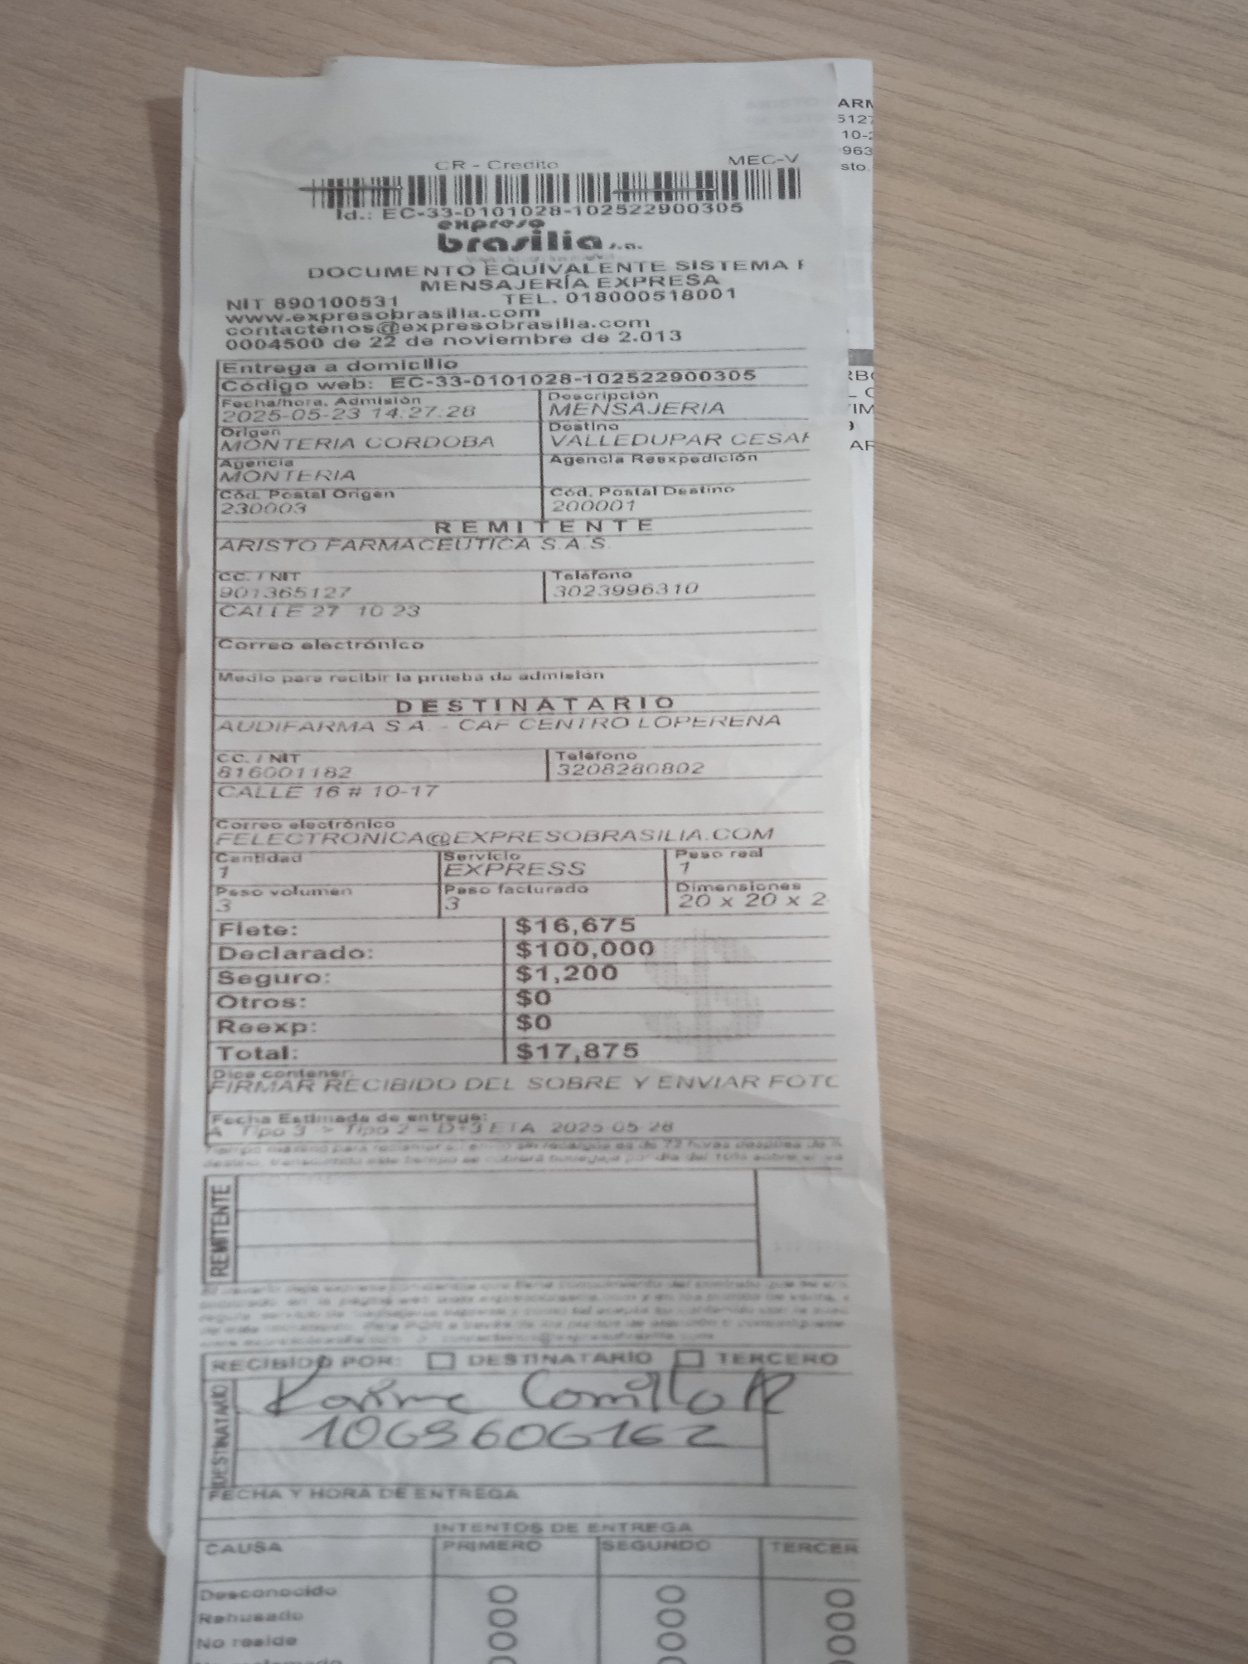 CR - Credito MEC-V
Id.: EC-33-0101028-102522900305
expreso
brasilia s.a.
DOCUMENTO EQUIVALENTE SISTEMA
MENSAJERÍA EXPRESA
NIT 890100531 TEL. 018000518001
www.expresobrasilia.com
contactenos@expresobrasilia.com
0004500 de 22 de noviembre de 2.013
Entrega a domicilio
Código web: EC-33-0101028-102522900305
Fecha/hora. Admisión Descripción
2025-05-23 14:27:28 MENSAJERIA
Origen Destino
MONTERIA CORDOBA VALLEDUPAR CESAR
Agencia Agencia Reexpedición
MONTERIA
Cód. Postal Origen Cód. Postal Destino
230003 200001
REMITENTE
ARISTO FARMACEUTICA S.A.S.
CC. / NIT Teléfono
901365127 3023996310
CALLE 27 10 23
Correo electrónico
Medio para recibir la prueba de admisión
DESTINATARIO
AUDIFARMA S.A. - CAF CENTRO LOPERENA
CC. / NIT Teléfono
816001182 3208280802
CALLE 16 # 10-17
Correo electrónico
FELECTRONICA@EXPRESOBRASILIA.COM
Cantidad Servicio Peso real
1 EXPRESS 1
Peso volumen Peso facturado Dimensiones
3 3 20 x 20 x 2
Flete: $16,675
Declarado: $100,000
Seguro: $1,200
Otros: $0
Reexp: $0
Total: $17,875
Dice contener:
FIRMAR RECIBIDO DEL SOBRE Y ENVIAR FOTO
Fecha Estimada de entrega:
A Tipo 3 > Tipo 2 = D+3 ETA 2025-05-28
REMITENTE
RECIBIDO POR: DESTINATARIO TERCERO
DESTINATARIO
Karime Comillo R
1063606162
FECHA Y HORA DE ENTREGA
INTENTOS DE ENTREGA
CAUSA PRIMERO SEGUNDO TERCER
Desconocido
Rehusado
No reside